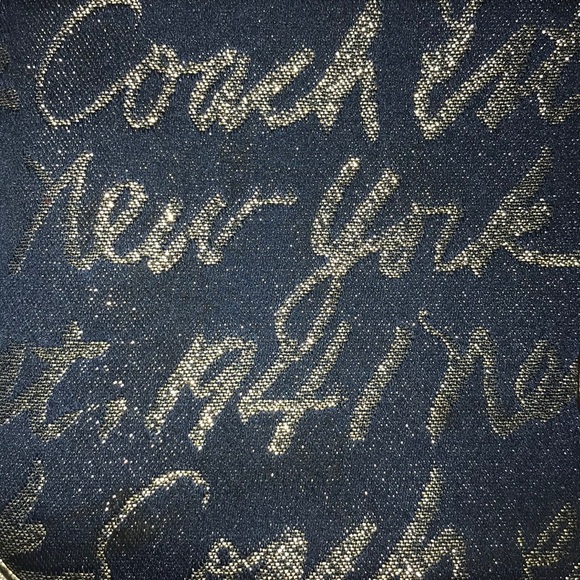 Coach
New York
st. 1941 Ne
Coach